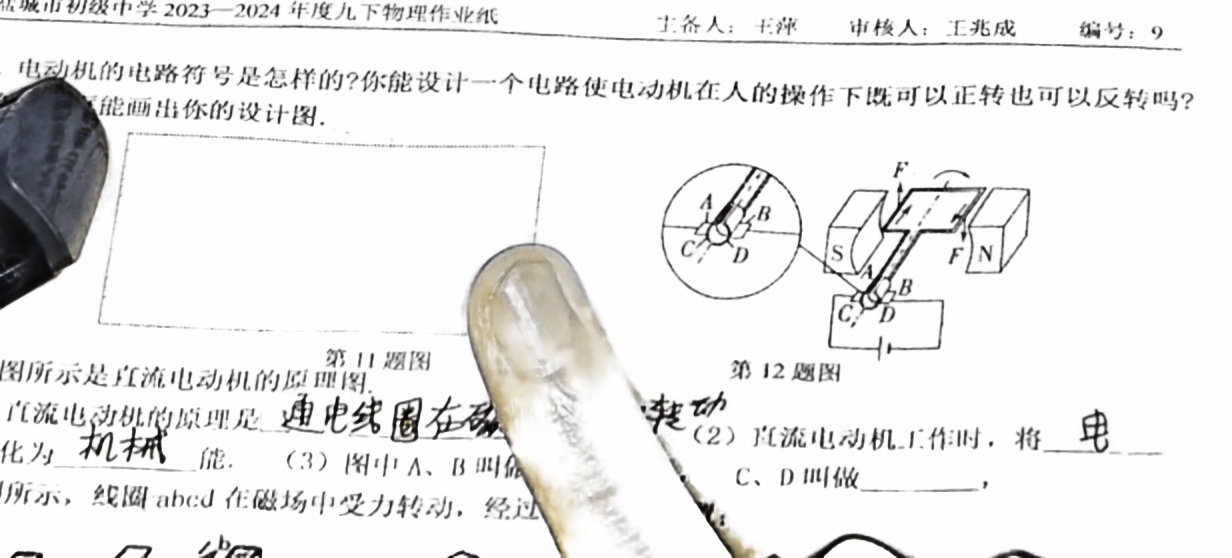 盐城市初级中学 2023—2024 年度九下物理作业纸 主备人：王萍 审核人：王兆成 编号：9
电动机的电路符号是怎样的?你能设计一个电路使电动机在人的操作下既可以正转也可以反转吗?
能画出你的设计图.
A B C D
F F S N A B C D
第 11 题图
第 12 题图
图所示是直流电动机的原理图.
直流电动机的原理是 通电线圈在磁 转动 (2) 直流电动机工作时，将 电
化为 机械 能. (3) 图中 A、B 叫做 C、D 叫做 ，
所示，线圈 abcd 在磁场中受力转动，经过
b